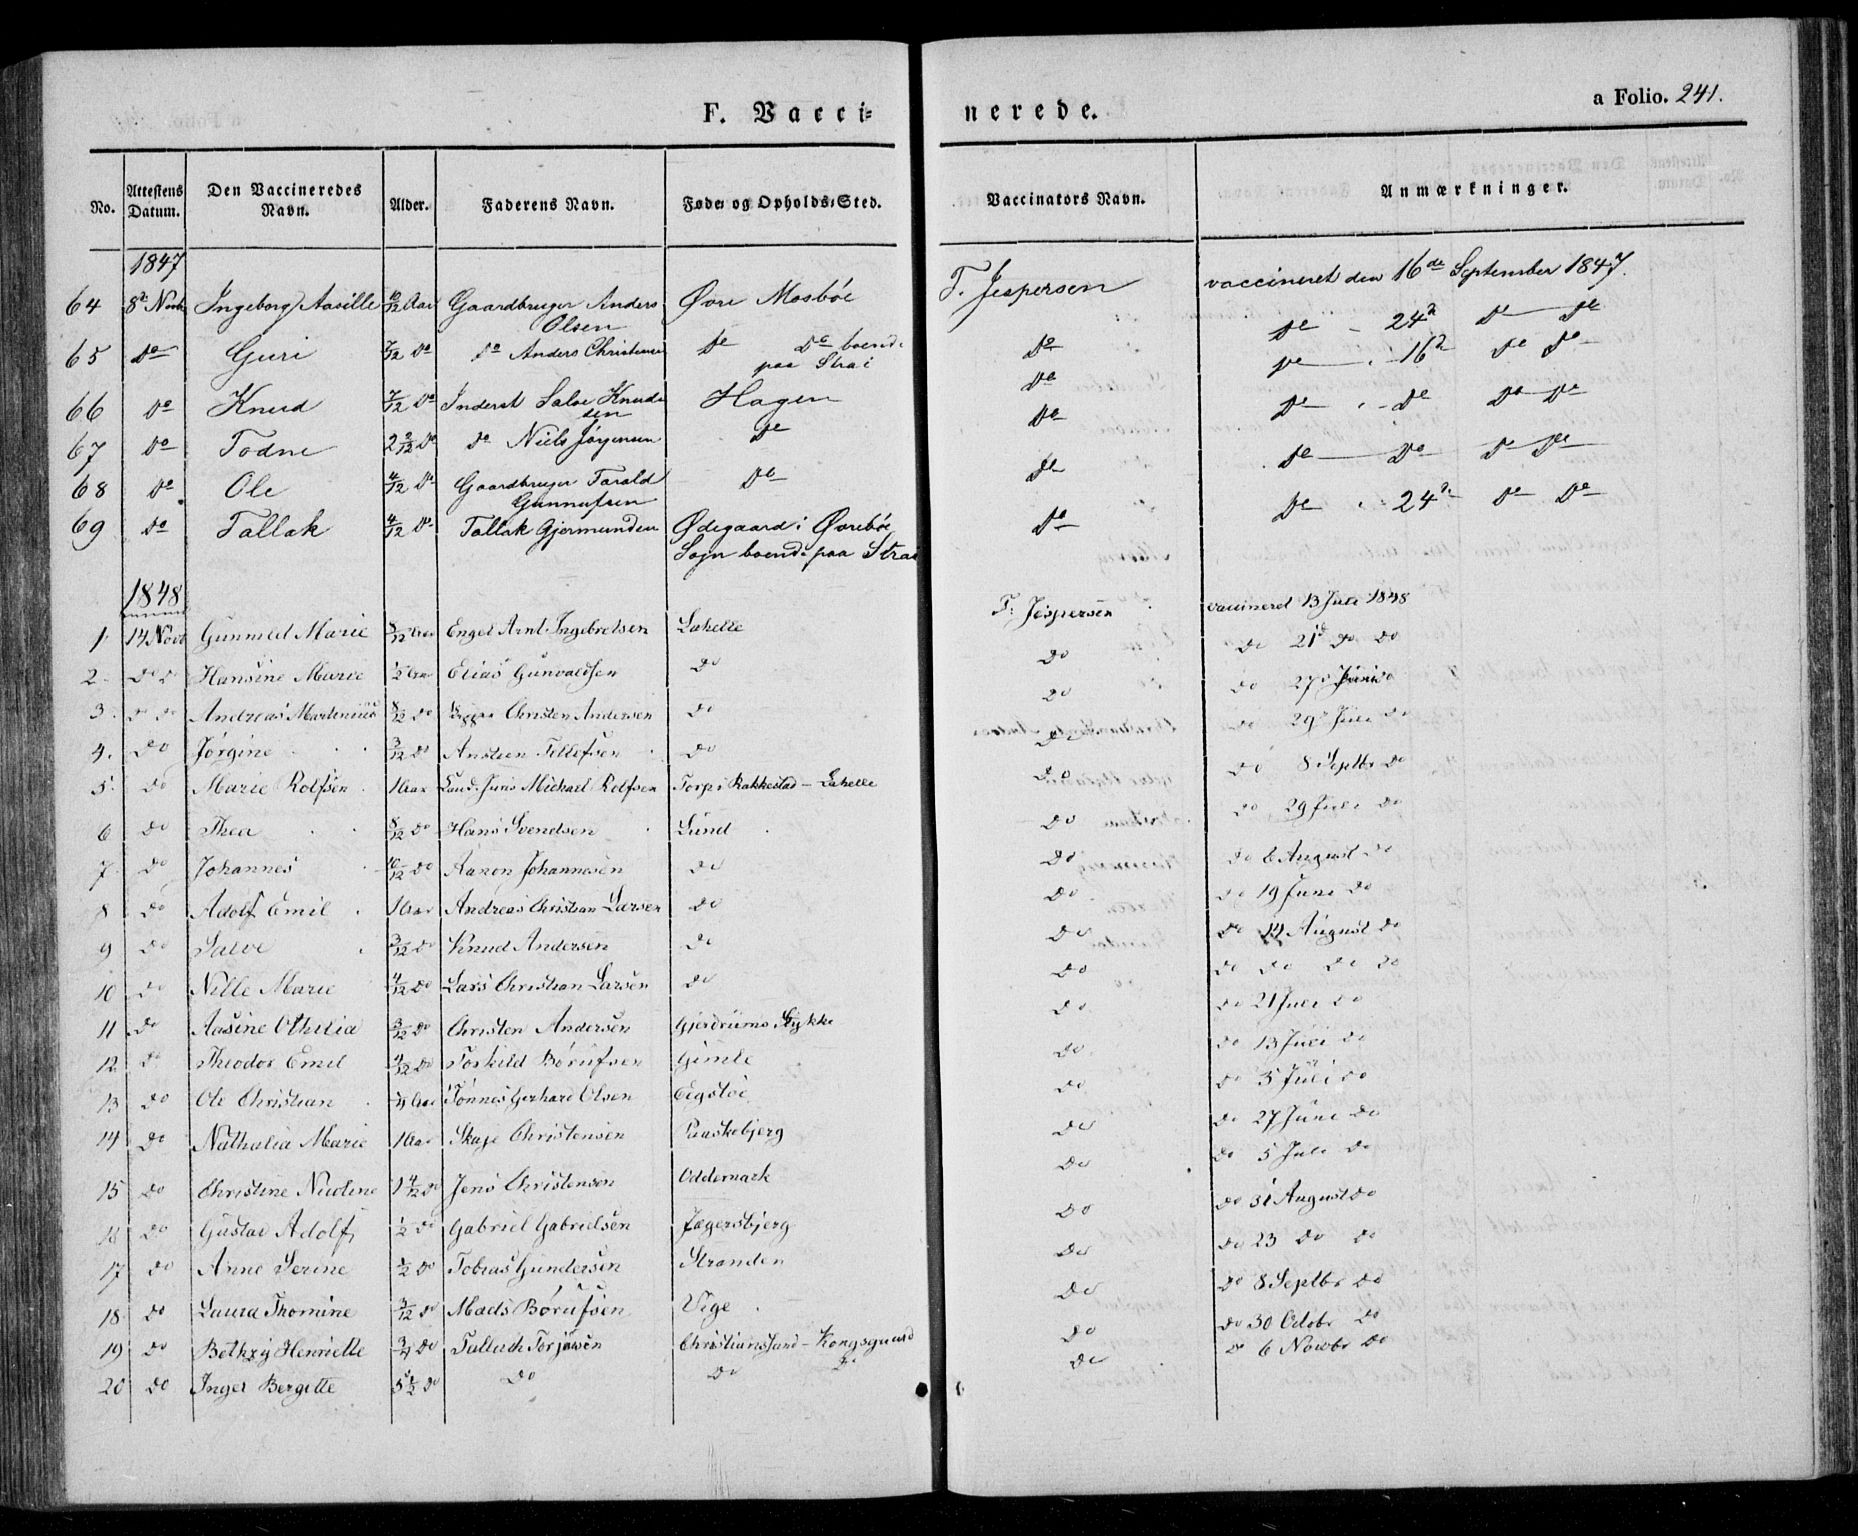 F. Vacci- nerede. a Folio. 241.
No. Attestens Datum. Den Vaccineredes Navn. Alder. Faderens Navn. Føde- og Opholds-Sted. Vaccinators Navn. Anmærkninger.
1847
64 8de Novb Ingeborg Aasille 10/12 Aar Gaardbruger Anders Olsen Øvre Mosbøe T. Jespersen vaccineret den 16de September 1847.
65 Do Guri 7/12 Do Do Anders Christensen Do Do boende paa Strai Do Do 24de Do Do
66 Do Knud 7/12 Do Inderst Salve Knudsen Hagen Do Do 16de Do Do
67 Do Todne 2 2/12 Do Do Niels Jørgensen Do Do Do Do Do Do
68 Do Ole 4/12 Do Gaardbruger Tarald Gunnufsen Do Do Do Do Do Do
69 Do Tallak 4/12 Do Tallak Gjermundsen Ødegaard i Øvrebøe Sogn boende paa Strai Do Do 24de Do Do
1848
1 14 Novb Gunnild Marie 8/12 Aar Engel Arnt Ingebretsen Lahelle T: Jespersen vaccineret 13 Juli 1848
2 Do Do Hansine Marie 1/2 Aar Elias Gunvaldsen Do Do Do 21de Do Do
3 Do Do Andreas Martinius 8/12 Do Christen Andersen Do Do Do 27de Juni Do
4. Do Jørgine 3/12 Do Ansteen Tellefsen Do Do Do 29de Juli Do
5. Do Marie Rolfsen 1 Aar Cand. Juris Michael Rolfsen Torp i Rakkestad - Lahelle Do Do 8 Septbr Do
6 Do Thea 8/12 Do Hans Svendsen Lund Do Do 29 Juli Do
7 Do Johannes 10/12 Do Aanon Johannesen Do Do Do 6 August Do
8 Do Adolf Emil 1 Aar Andreas Christian Larsen Do Do Do 19 Juni Do
9 Do Salve 3/12 Do Knud Andersen Do Do Do 14 August Do
10 Do Nille Marie 4/12 Do Lars Christian Larsen Do Do Do Do Do Do
11 Do Aasine Othilia 3/12 Do Christen Andersen Gjerdrums Stykke Do Do 21 Juli Do
12 Do Theodor Emil 4/12 Do Torkild Børufsen Gimle Do Do 13 Juli Do
13 Do Ole Christian 1/4 Aar Tønnes Gerhard Olsen Eigstøe Do Do 5 Juli Do
14 Do Nathalia Marie 1 Aar Skaje Christensen Paaskebjerg Do Do 27 Juni Do
15 Do Christine Nicoline 1 4/12 Do Jens Christensen Oddernæs Do Do 5 Juli Do
18 Do Gustav Adolf 1/2 Do Gabriel Gabrielsen Jægersbjerg Do Do 31 August Do
17 Do Anne Serine 1/2 Do Tobias Gundersen Stranden Do Do 23 Do Do
18 Do Laura Thomine 3/12 Do Mads Børufsen Vige Do Do 8 Septbr Do
19 Do Bethzy Henriette 3/4 Do Tallach Torjusen Christianssand - Kongsgaard Do Do 30 Octobr Do
20 Do Inger Bergitte 5 1/2 Do Do Do Do Do Do 6 Novbr Do